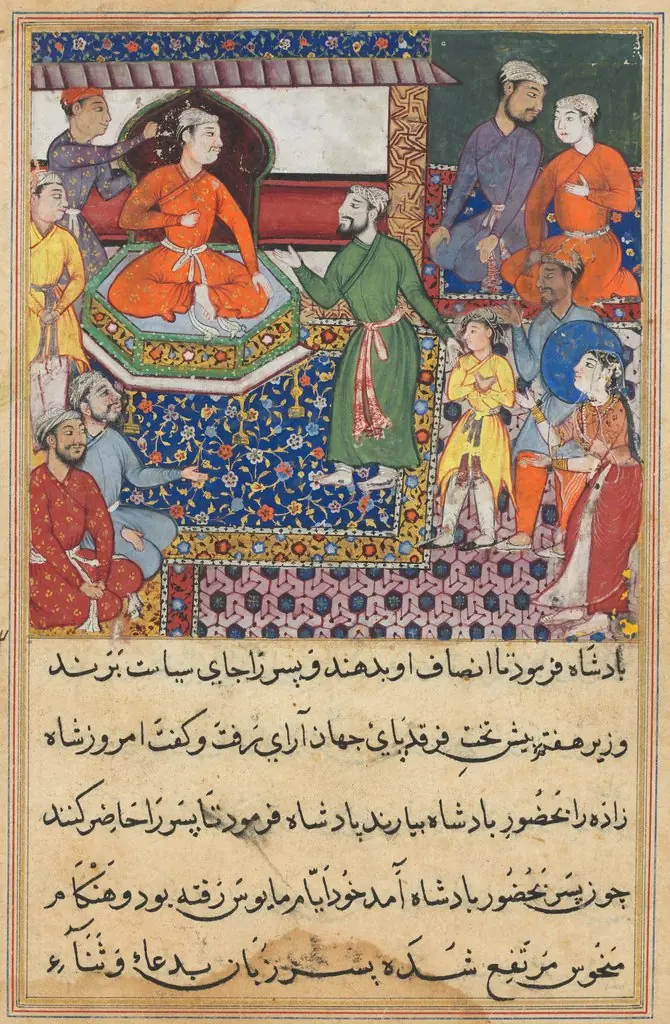 بادشاه فرمود تا انصاف او بدهند و پسر را جای سیاست برند
وزیر هفتم پیش تخت فرقدپای جهان آرای رفت و گفت امروز شاه
زاده را بحضور بادشاه بیارند بادشاه فرمود تا پسر را حاضر کنند
چون پسر بحضور بادشاه آمد خود ایام مایوس رفته بود و هنگام
منحوس مرتفع شده پسر زبان بدعاء و ثناء